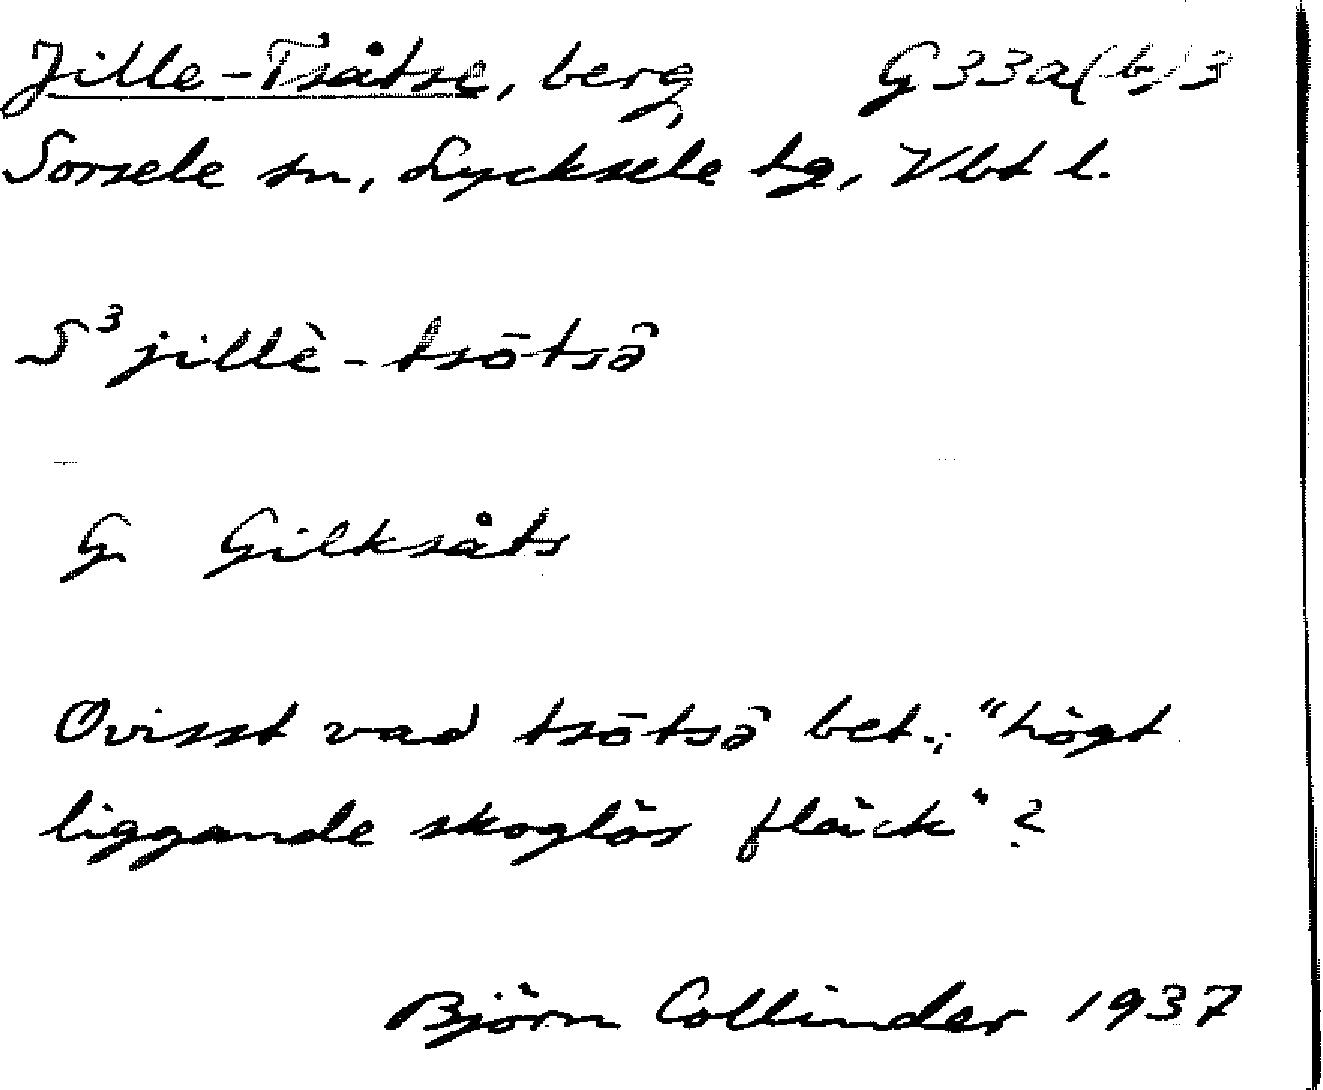 Jille-Tsåtse, berg G33a(b)3
Sorsele sn, Lycksele tg, Vbt l.
S³ jillè-tsōtsə̂
G Gilksåts
Ovisst vad tsōtsə̂ bet.; "högt
liggande skoglös fläck"?
Björn Collinder 1937